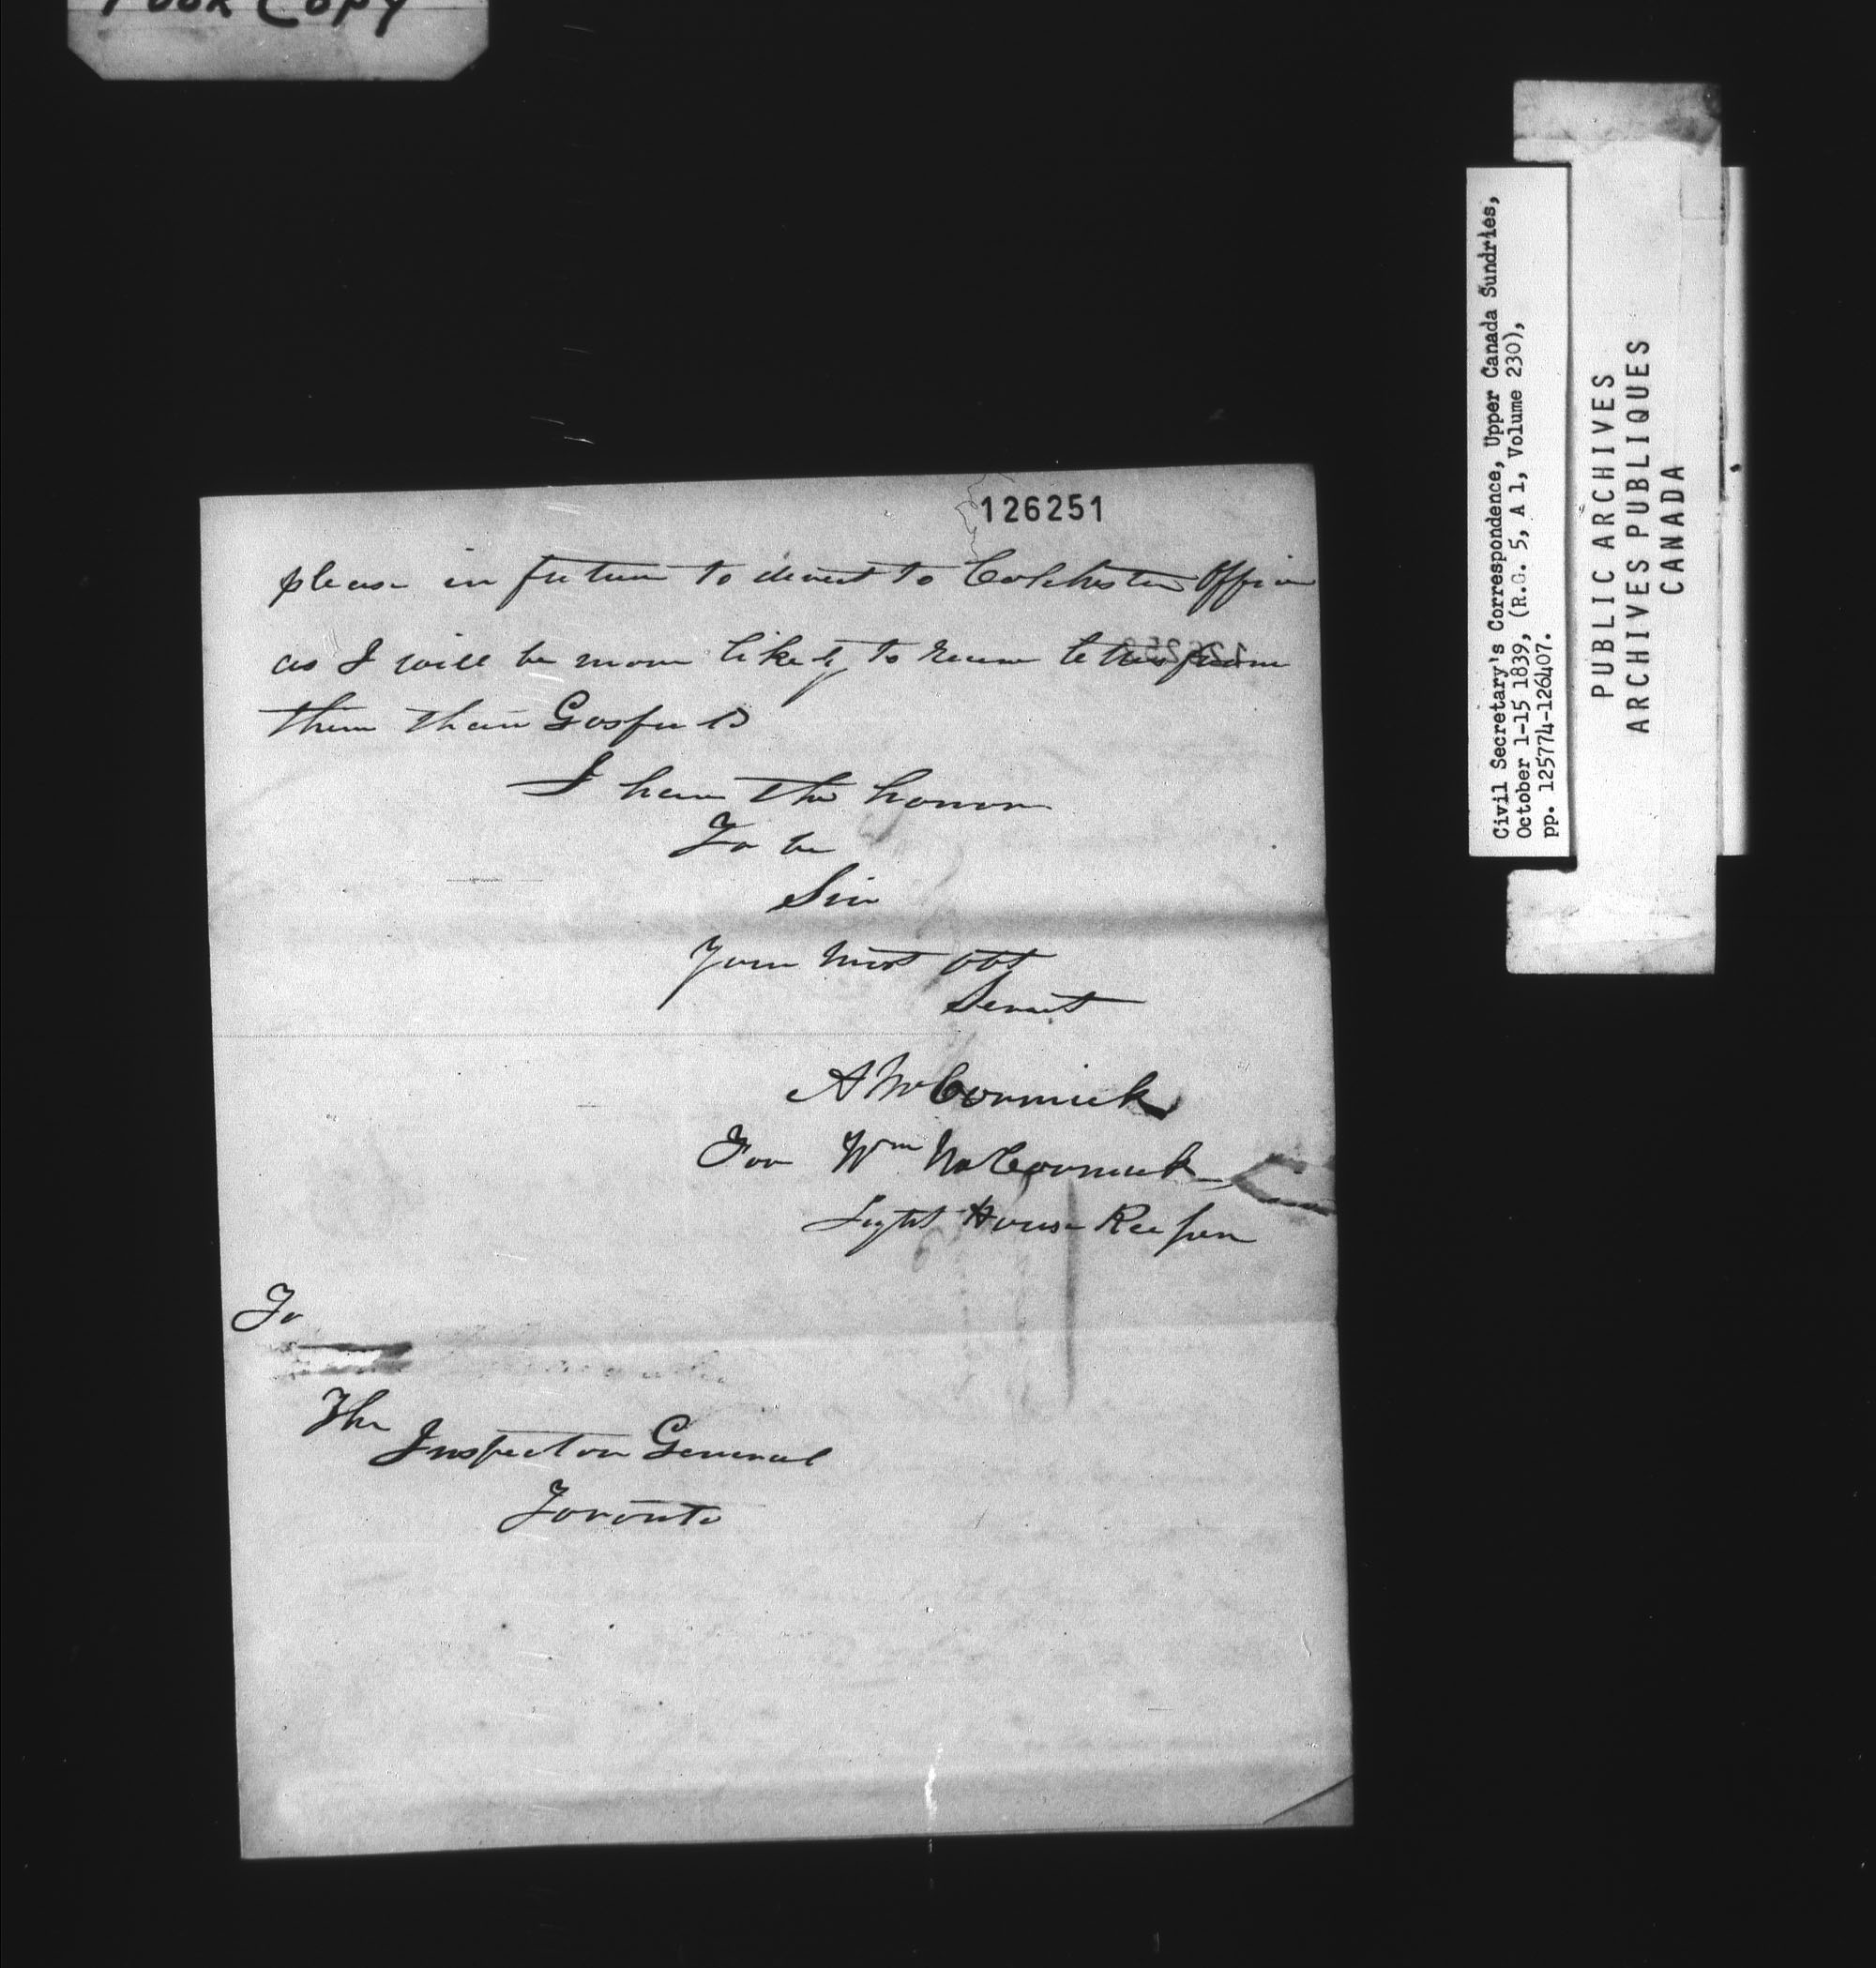 Poor Copy
126251
please in future to direct to Colchester Office
as I will be more likely to receive letters from
them than Gosfield
I have the honor
To be
Sir
Your most obt
Servt
A McCormick
For Wm McCormick
Light House Keeper
To
The
Inspector General
Toronto
Civil Secretary's Correspondence, Upper Canada Sundries,
October 1-15 1839, (R.G. 5, A 1, Volume 230),
pp. 125774-126407.
PUBLIC ARCHIVES
ARCHIVES PUBLIQUES
CANADA